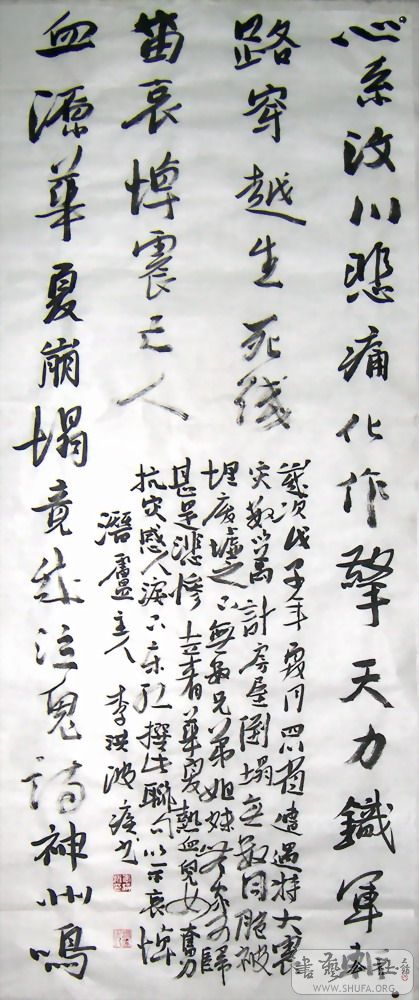 心系汶川悲痛化作擎天力鐵軍
路穿越生死线
血源華夏崩塌竟成泣鬼詩神州鳴
笛哀悼震亡人
歲次戊子年四川省遭遇特大震
災數以萬計房屋倒塌無數同胞被
埋廢墟之下無數兄弟姐妹無家可歸
甚是悲惨華夏熱血兒女奮力
抗災感人淚下撰此聯句以示哀悼
潛廬主人李洪波
書艺公社
WWW.SHUFA.ORG